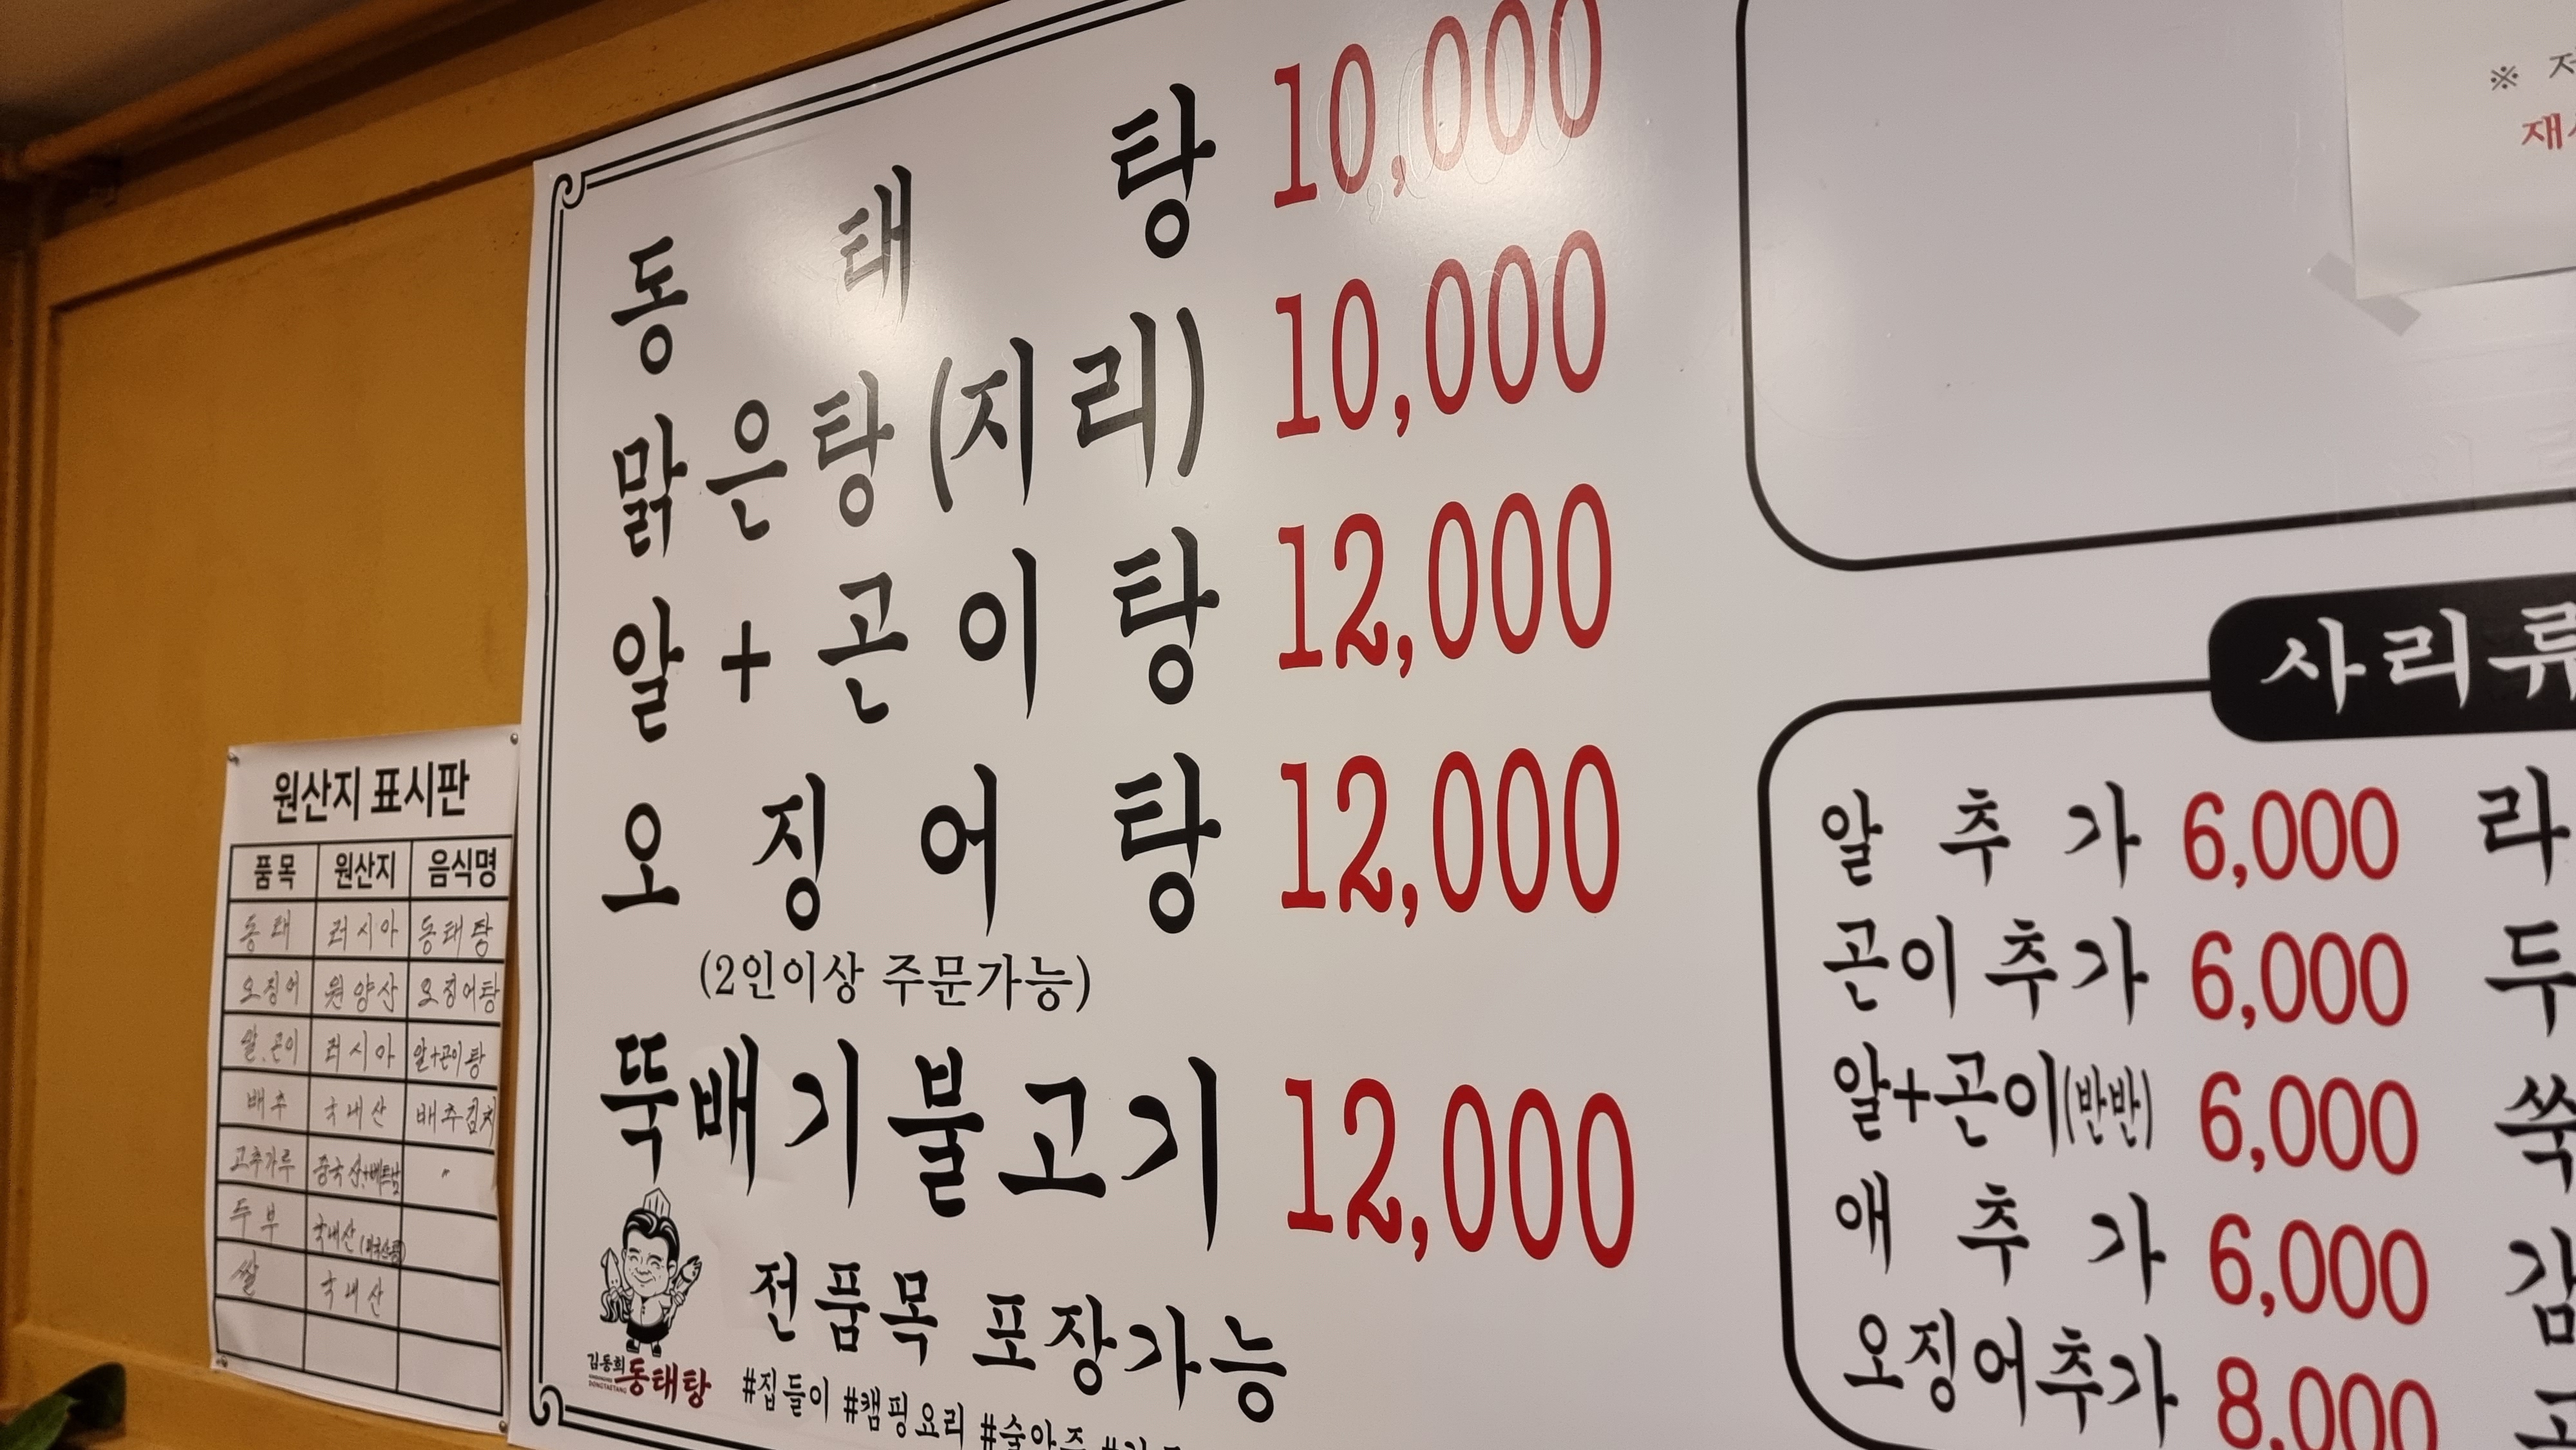 동태탕 10,000
맑은탕(지리) 10,000
알+곤이탕 12,000
오징어탕 12,000
(2인이상 주문가능)
뚝배기불고기 12,000
전품목 포장가능
김동희 동태탕
#집들이 #캠핑요리 #술안주
원산지 표시판
품목 원산지 음식명
동태 러시아 동태탕
오징어 원양산 오징어탕
알.곤이 러시아 알+곤이탕
배추 국내산 배추김치
고추가루 중국산+베트남 〃
두부 국내산
쌀 국내산
※
사리류
알추가 6,000
곤이추가 6,000
알+곤이(반반) 6,000
애추가 6,000
오징어추가 8,000